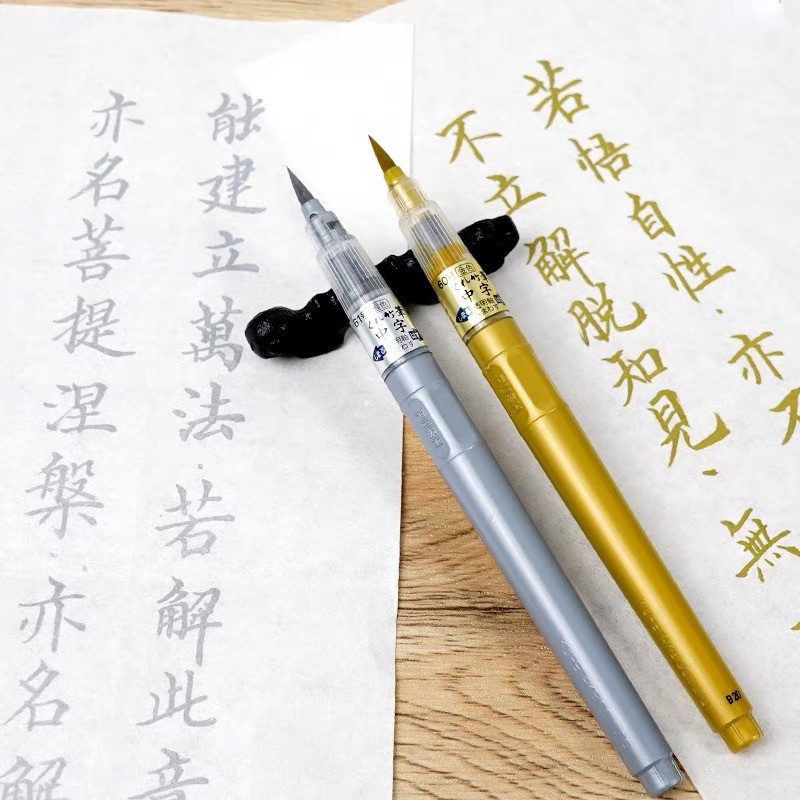 若悟自性·亦不
不立解脱知見·無
能建立萬法·若解此
亦名菩提涅槃·亦名解
くれ竹筆
中字
60
金色
くれ竹筆
中字
B 20